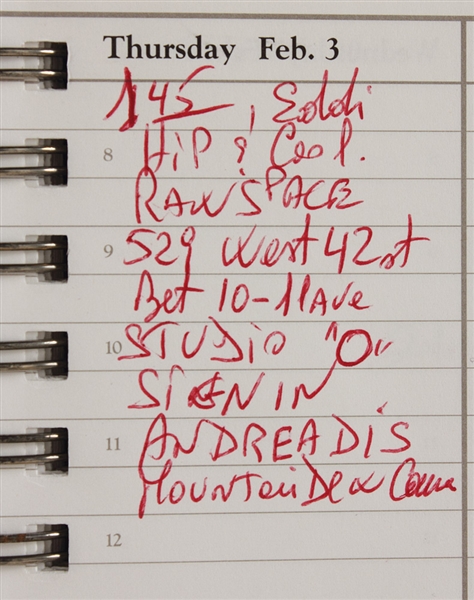 Thursday Feb. 3
1.45, Eddi
8 HiP & Cool.
RAWSPACE
9 529 West 42st
Bet 10-11 Ave
10 STUDIO "O"
SIGN IN
11 ANDREADIS
Mountain Dew Comm
12